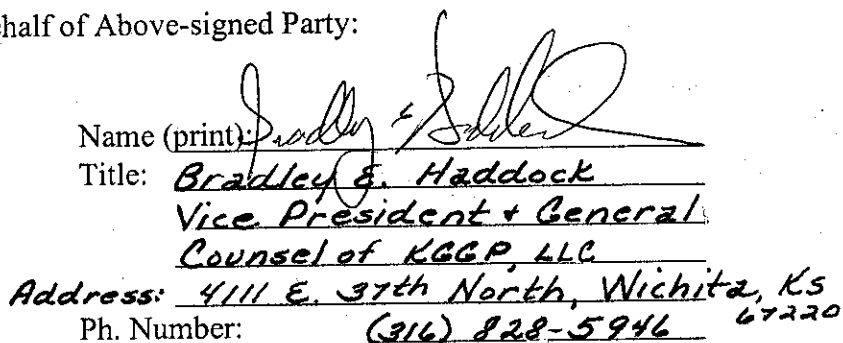 ehalf of Above-signed Party:
Name (print): Bradley E. Haddock
Title: Bradley E. Haddock
Vice President + General
Counsel of KGGP, LLC
Address: 4111 E. 37th North, Wichita, Ks
67220
Ph. Number: (316) 828-5946